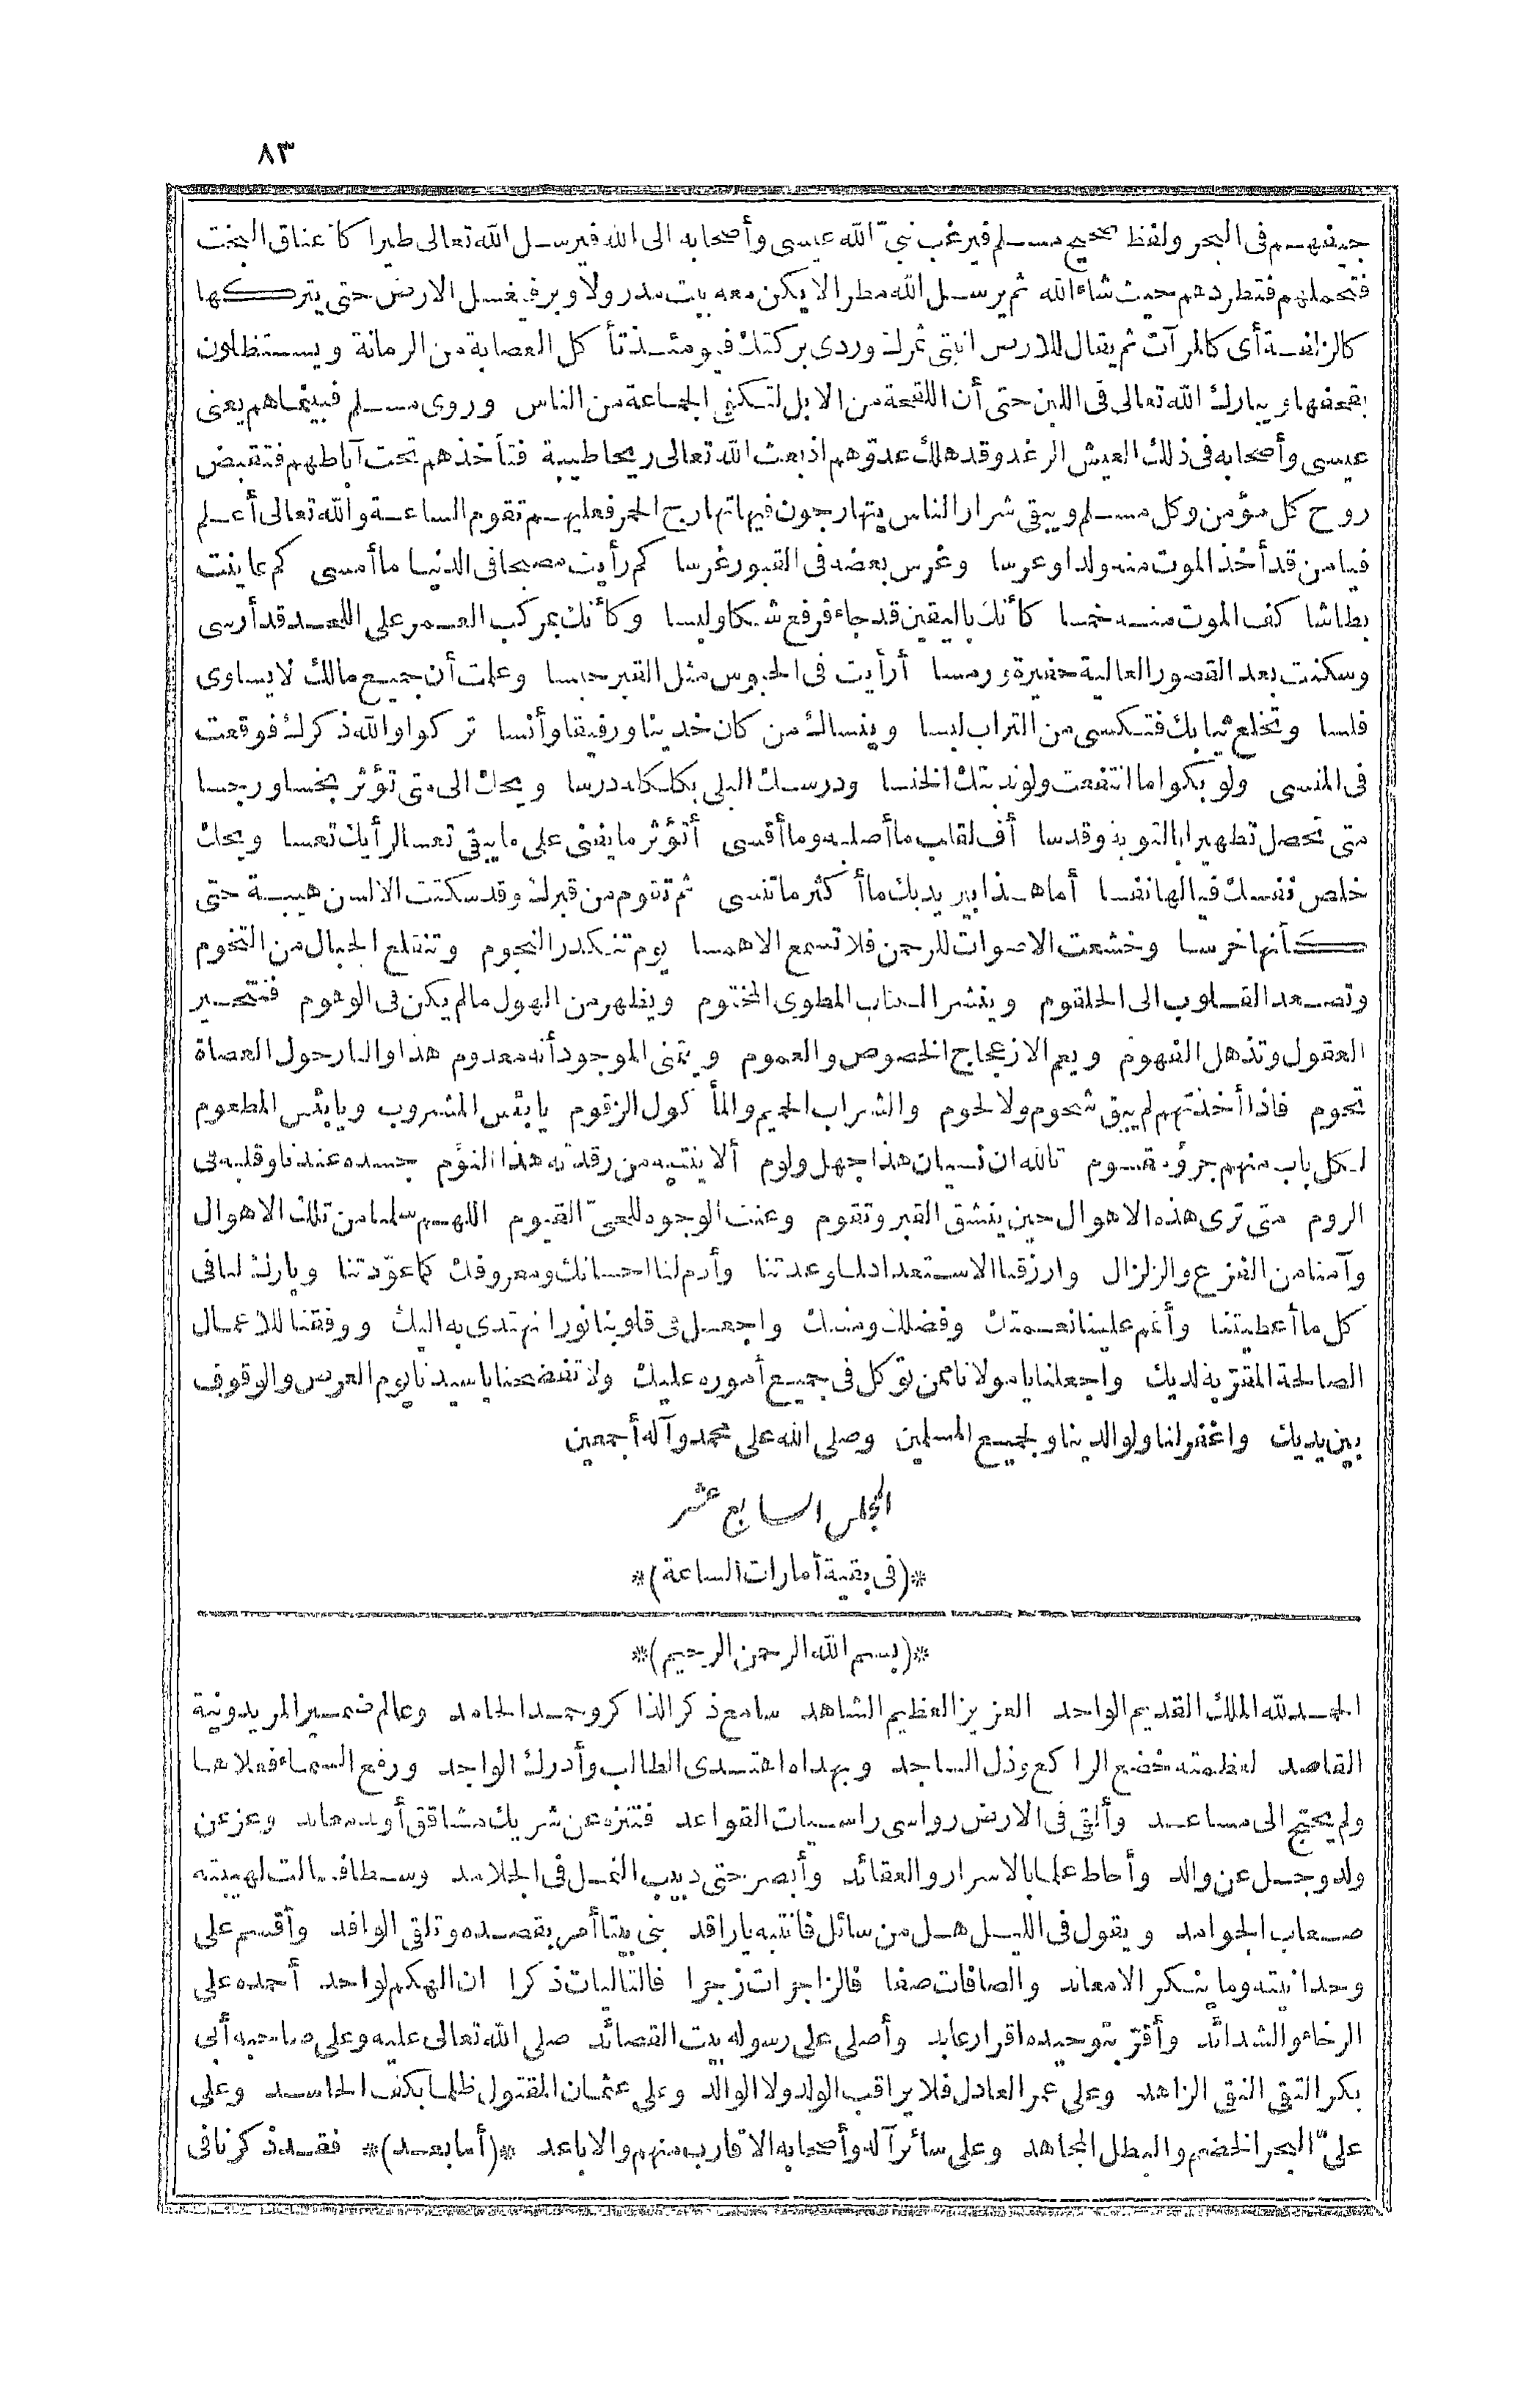 ٨٣
جيفهم فى البحر ولفظ صحيح مسلم فيرغب نبىّ الله عيسى وأصحابه الى الله فيرسل الله تعالى طيرا كأعناق البخت
فتحملهم فتطردهم حيث شاء الله ثم يرسل الله مطرا لا يكن معه بيت مدر ولا وبر فيغسل الارض حتى يتركها
كالزلفة أى كالمرآت ثم يقال للارض انبتى ثمرك وردى بركتك فيومئذ تأكل العصابة من الرمانة ويستظلون
بقحفها ويبارك الله تعالى فى اللبن حتى أن اللقحة من الابل لتكفى الجماعة من الناس وروى مسلم فبينما هم يعنى
عيسى وأصحابه فى ذلك العيش الرغد وقد هلك عدوّهم اذ بعث الله تعالى ريحا طيبة فتأخذهم تحت آباطهم فتقبض
روح كل مؤمن وكل مسلم ويبقى شرار الناس يتهارجون فيها تهارج الحمر فعليهم تقوم الساعة والله تعالى أعلم
فيا من قد أخذ الموت منه ولدا وعرسا وغرس بعضه فى القبور غرسا كم رأيت مصبحا فى الدنيا ما أمسى كم عاينت
بطاشا كف الموت منه خمسا كأنك باليقين قد جاء فرفع شكا ولبسا وكأنك بمركب العمر على اللحد قد أرسى
وسكنت بعد القصور العالية حفيرة ورمسا أرأيت فى الحبوس مثل القبر حبسا وعلمت أن جميع مالك لا يساوى
فلسا وتخلع ثيابك فتكسى من التراب لبسا وينساك من كان خدينا ورفيقا وأنسا تركوا والله ذكرك فوقعت
فى المنسى ولو بكوا ما انتفعت ولو ندبتك الخنسا ودرسك البلى بكلكله درسا ويحك الى متى تؤثر بخسا ورجسا
متى تحصل تطهيرا بالتوبة وقدسا أف لقلب ما أصلبه وما أقسى أتؤثر ما يفنى على ما يبقى تعسا لرأيك تعسا ويحك
خلص نفسك فيالها نفسا أما هذا بين يديك ما أكثر ما تنسى ثم تقوم من قبرك وقد سكتت الالسن هيبة حتى
كأنها خرسا وخشعت الاصوات للرحمن فلا تسمع الا همسا يوم تنكدر النجوم وتنقلع الجبال من التخوم
وتصعد القلوب الى الحلقوم وينشر الكتاب المطوى المختوم ويظهر من الهول ما لم يكن فى الوهوم فتتحير
العقول وتذهل الفهوم ويعم الازعجاج الخصوص والعموم ويتمنى الموجود أنه معدوم هذا والنار حول العصاة
تحوم فاذا أخذتهم لم يبق شحوم ولا لحوم والشراب الحميم والمأكول الزقوم يا بئس المشروب ويا بئس المطعوم
لكل باب منهم جزؤ مقسوم تالله ان نسيان هذا جهل ولوم ألا ينتبه من رقدته هذا النؤم جسده عندنا وقلبه فى
الروم متى ترى هذه الاهوال حين ينشق القبر وتقوم وعنت الوجوه للحىّ القيوم اللهم سلمنا من تلك الاهوال
وآمنا من الفزع والزلزال وارزقنا الاستعداد لما وعدتنا وأدم لنا احسانك ومعروفك كما عوّدتنا وبارك لنا فى
كل ما أعطيتنا وأتمم علينا نعمتك وفضلك ومنك واجعل فى قلوبنا نورا نهتدى به اليك ووفقنا للاعمال
الصالحة المقتربة لديك واجعلنا يا مولانا ممن توكل فى جميع أموره عليك ولا تفضحنا يا سيدنا يوم العرض والوقوف
بين يديك واغفر لنا ولوالدينا ولجميع المسلمين وصلى الله على محمد وآله أجمعين
المجلس السابع عشر
*(فى بقية أمارات الساعة)*
*(بسم الله الرحمن الرحيم)*
الحمد لله الملك القديم الواحد العزيز العظيم الشاهد سامع ذكر الذاكر وحمد الحامد وعالم ضمير المريد ونية
القاصد لعظمته خضع الراكع وذل الساجد وبهداه اهتدى الطالب وأدرك الواجد ورفع السماء فعلاها
ولم يحتج الى مساعد وألقى فى الارض رواسى راسيات القواعد فتنزه عن شريك مشاقق أوند معاند وعز عن
ولد وجل عن والد وأحاط علما بالاسرار والعقائد وأبصر حتى دبيب النمل فى الجلامد وسطا فسالت لهيبته
صعاب الجوامد ويقول فى الليل هل من سائل فانتبه يا راقد بنى بيتا أمر بقصده وتلقى الوافد وأقسم على
وحدانيته وما ينكر الا معاند والصافات صفا فالزاجرات زجرا فالتاليات ذكرا ان الهكم لواحد أحمده على
الرخاء والشدائد وأقرّ بتوحيده اقرار عابد وأصلى على رسوله بيت القصائد صلى الله تعالى عليه وعلى صاحبه أبى
بكر التقى النقى الزاهد وعلى عمر العادل فلا يراقب الولد ولا الوالد وعلى عثمان المقتول ظلما بكف الحاسد وعلى
علىّ البحر الخضم والبطل المجاهد وعلى سائر آله وأصحابه الاقارب منهم والاباعد *(أما بعد)* فقد ذكرنا فى